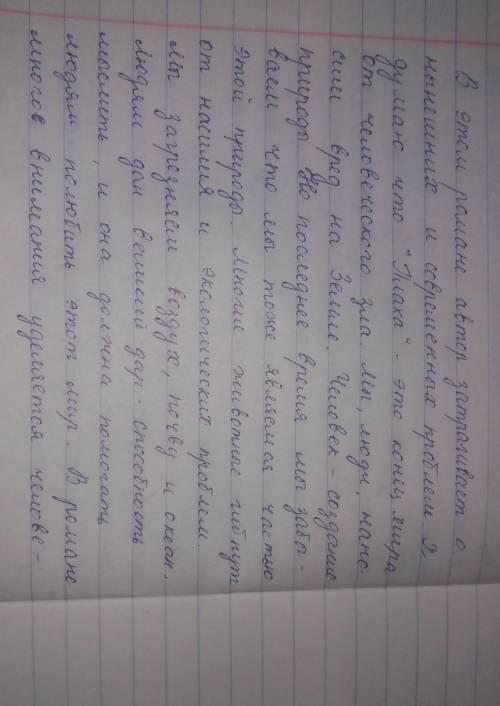 В этом романе автор затрагивает о
нынешних и современных проблем. Я
думаю что "Плаха" - это конец мира
от человеческого зла. Мы, люди, нано-
сим вред на Земле. Человек - создание
природы. Но последнее время мы забы-
ваем что мы тоже являемся частью
этой природы. Многие животные гибнут
от насилия и экологических проблем.
Мы загрезняем воздух, почву и океан.
Людям дан великий дар - способность
мыслить, и она должна помогать
людям полюбить этот мир. В романе
многов внимания уделяется челове-